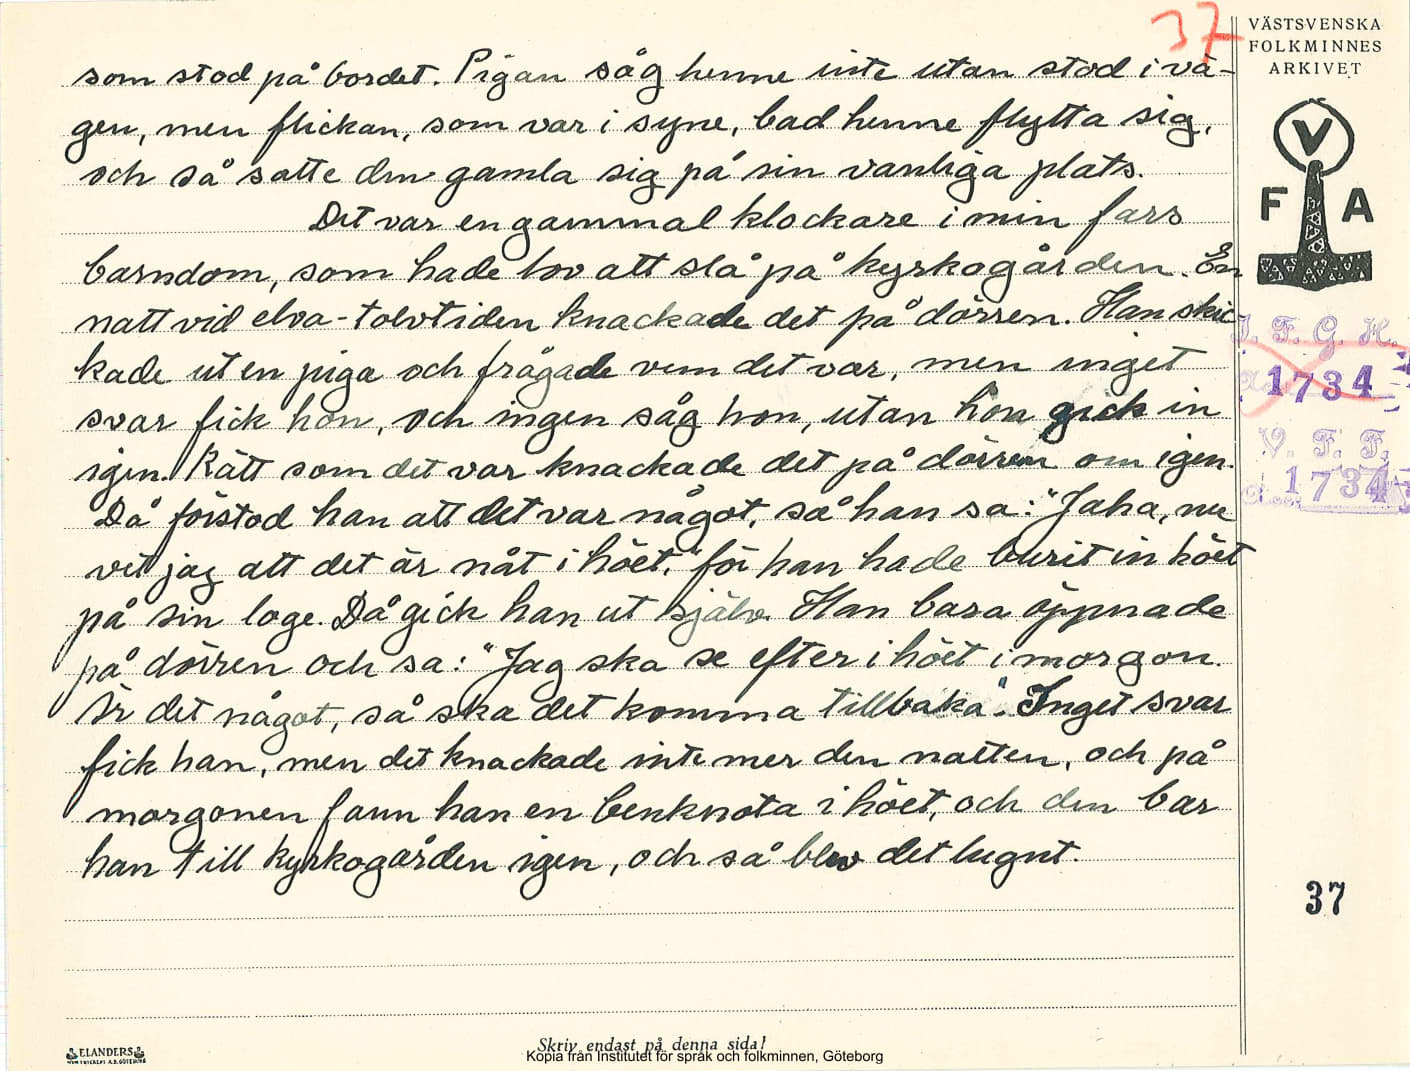 37
VÄSTSVENSKA
FOLKMINNES
ARKIVET
som stod på bordet. Pigan såg henne inte utan stod i vä-
gen, men flickan, som var i syne, bad henne flytta sig,
och så satte den gamla sig på sin vanliga plats.
Det var en gammal klockare i min fars
barndom, som hade lov att slå på kyrkogården. En
natt vid elva-tolvtiden knackade det på dörren. Han skic-
kade ut en piga och frågade vem det var, men inget
svar fick hon, och ingen såg hon, utan hon gick in
igen. Rätt som det var knackade det på dörren om igen.
Då förstod han att det var något, så han sa: "Jaha, nu
vet jag att det är nåt i höet," för han hade burit in höet
på sin loge. Då gick han ut själv. Han bara öppnade
på dörren och sa: "Jag ska se efter i höet i morgon.
Är det något, så ska det komma tillbaka". Inget svar
fick han, men det knackade inte mer den natten, och på
morgonen fann han en benknota i höet, och den bar
han till kyrkogården igen, och så blev det lugnt.
V
F A
I. F. G. H.
1734
V. F. F.
1734
37
ELANDERS
Skriv endast på denna sida!
Kopia från Institutet för språk och folkminnen, Göteborg